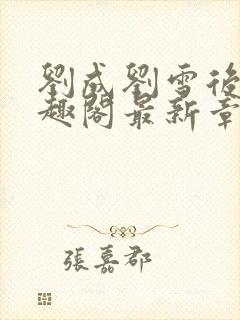 劉成劉雪後
趣閣最新章
張嘉郡